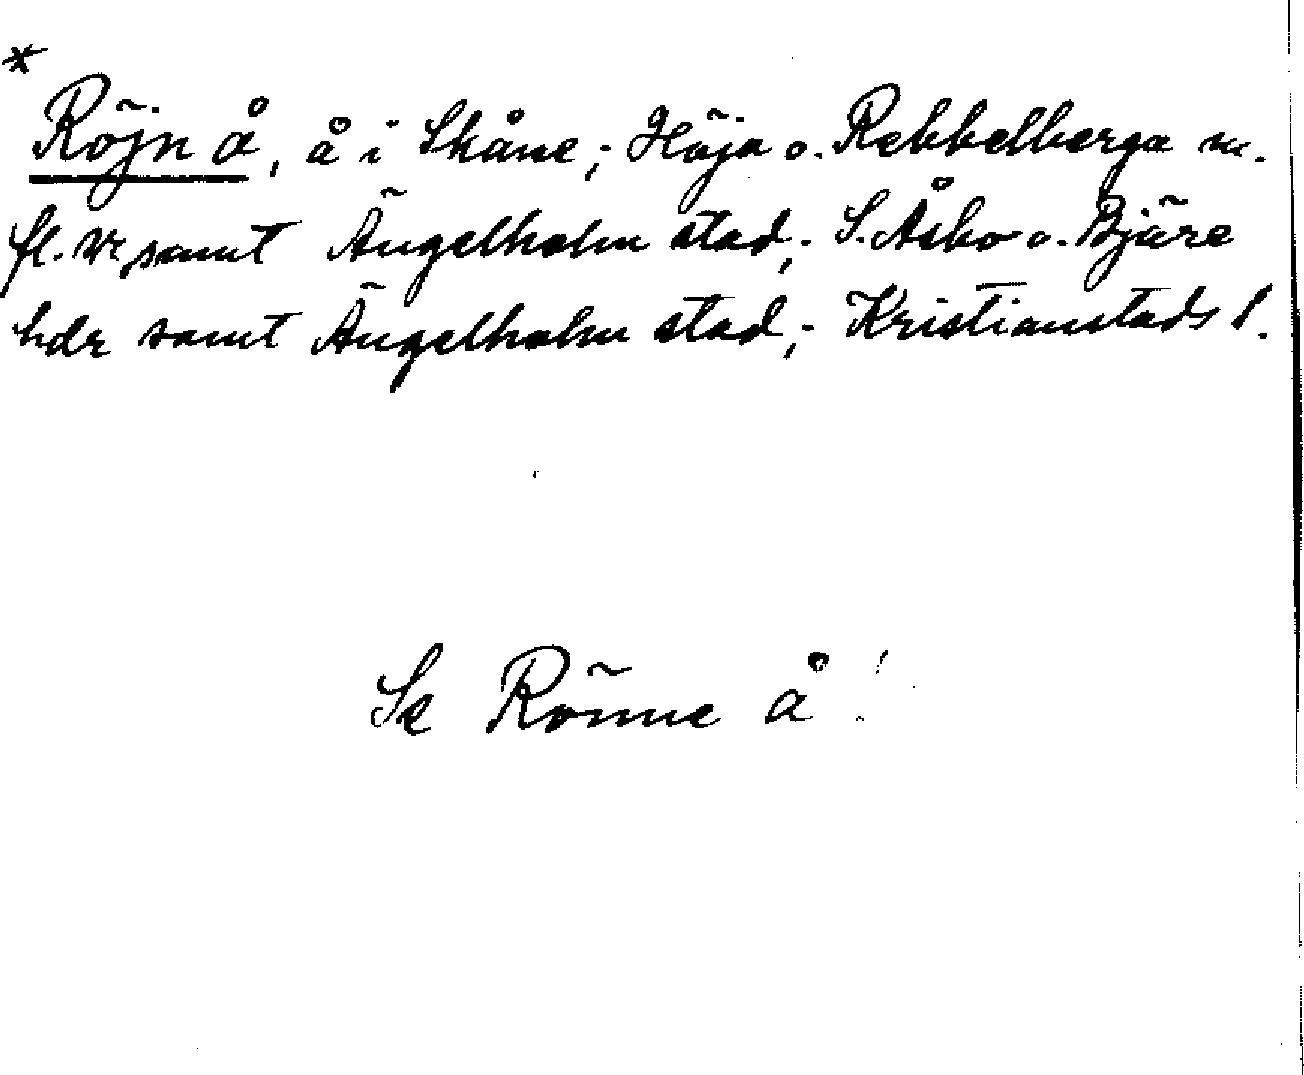 *
Röjn å, å i Skåne; Höja o. Rebbelberga m.
fl. sr samt Ängelholm stad; S. Åsbo o. Bjäre
hdr samt Ängelholm stad; Kristianstads l.
Se Rönne å!